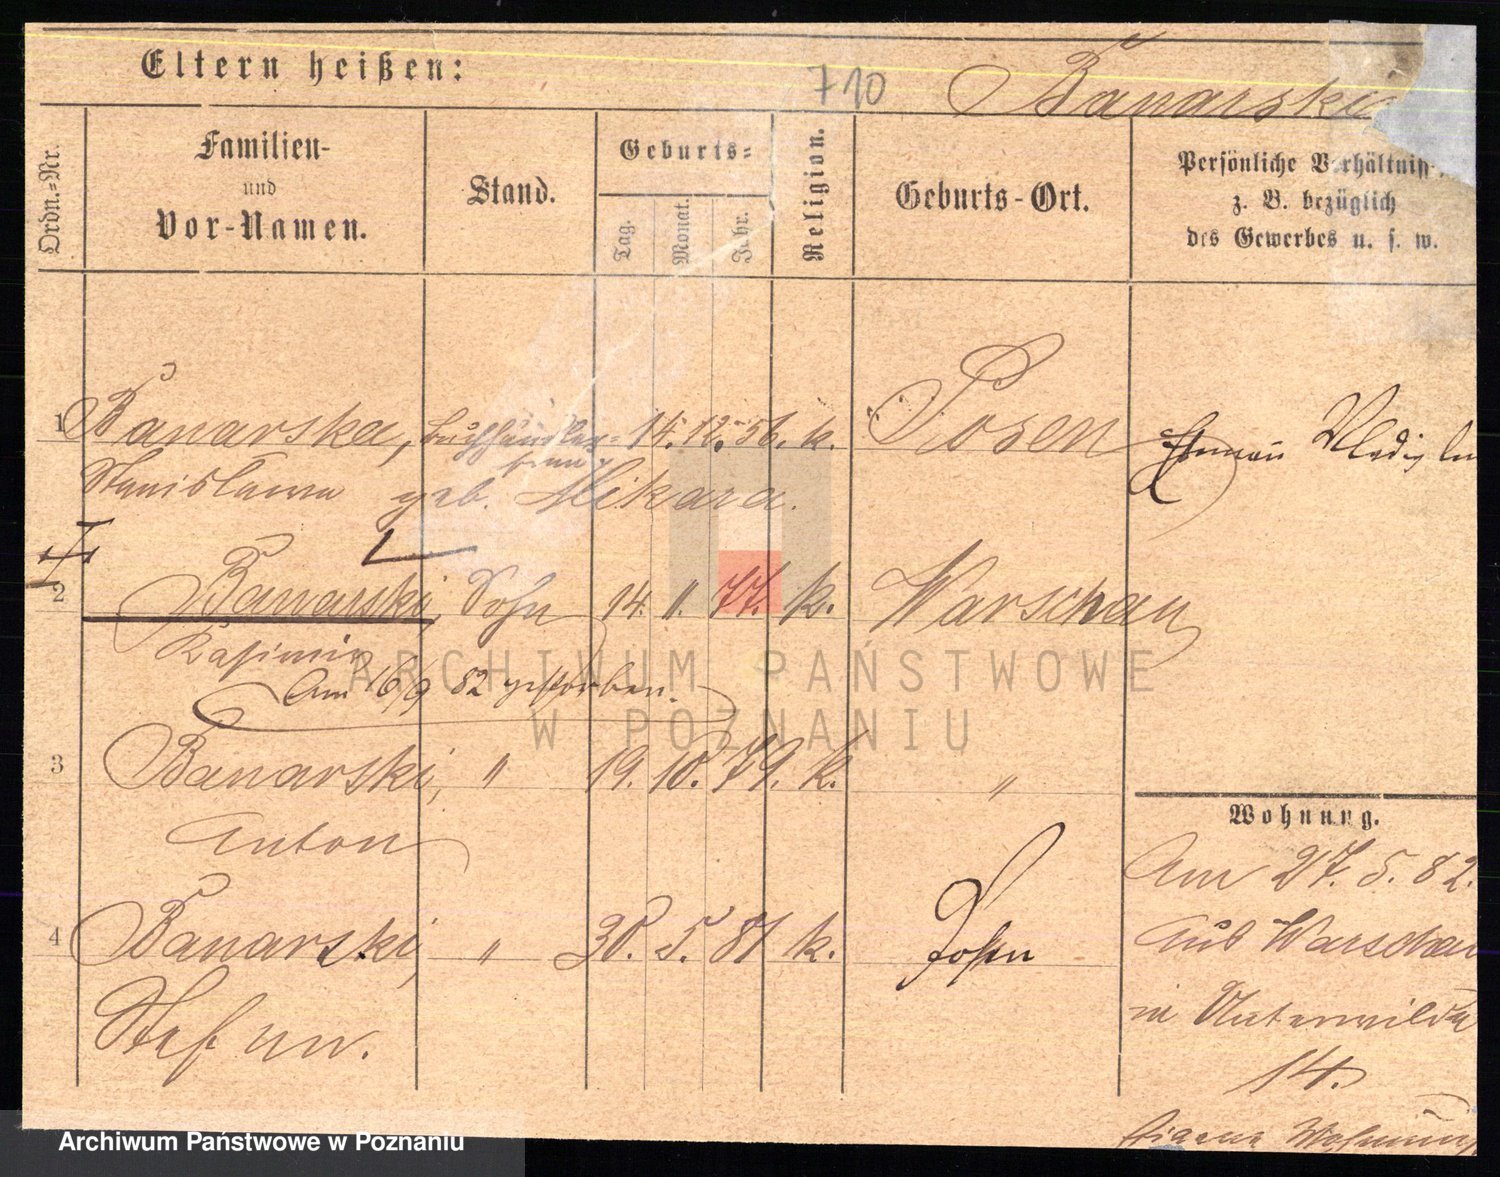 Eltern heißen:
710
Banarski
Ordn.-Nr.
Familien-
und
Vor-Namen.
Stand.
Geburts-
Tag.
Monat.
Jahr.
Religion.
Geburts-Ort.
Persönliche Verhältniss
z. B. bezüglich
des Gewerbes u. s. w.
1 Banarska, 14. 12. 56. k. Posen
Stanislawa geb. Mikara.
2 Banarski, Sohn 14. 11. 77. k. Warschau
Kasimir
Am 16/9 82 gestorben.
3 Banarski, " 19. 10. 79. k. "
Anton
4 Banarski, " 30. 5. 81 k. Posen
Stefan.
Wohnung.
Am 27. 5. 82.
Aus Warschau
in Unterwilda
14.
Wohnung
ARCHIWUM PAŃSTWOWE
W POZNANIU
Archiwum Państwowe w Poznaniu